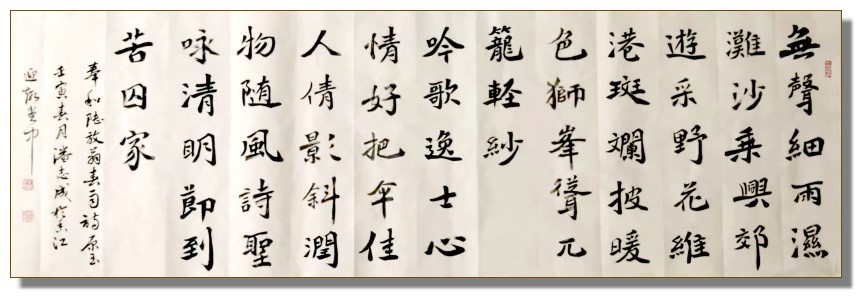 無聲細雨濕
灘沙乘興郊
遊采野花維
港斑斕披暖
色獅峯聳兀
籠軽紗
吟歌逸士心
情好把伞佳
人倩影斜潤
物随風詩聖
咏清明節到
苦囚家
奉和陸放翁春雨詩原玉
壬寅春月潘志成於香江